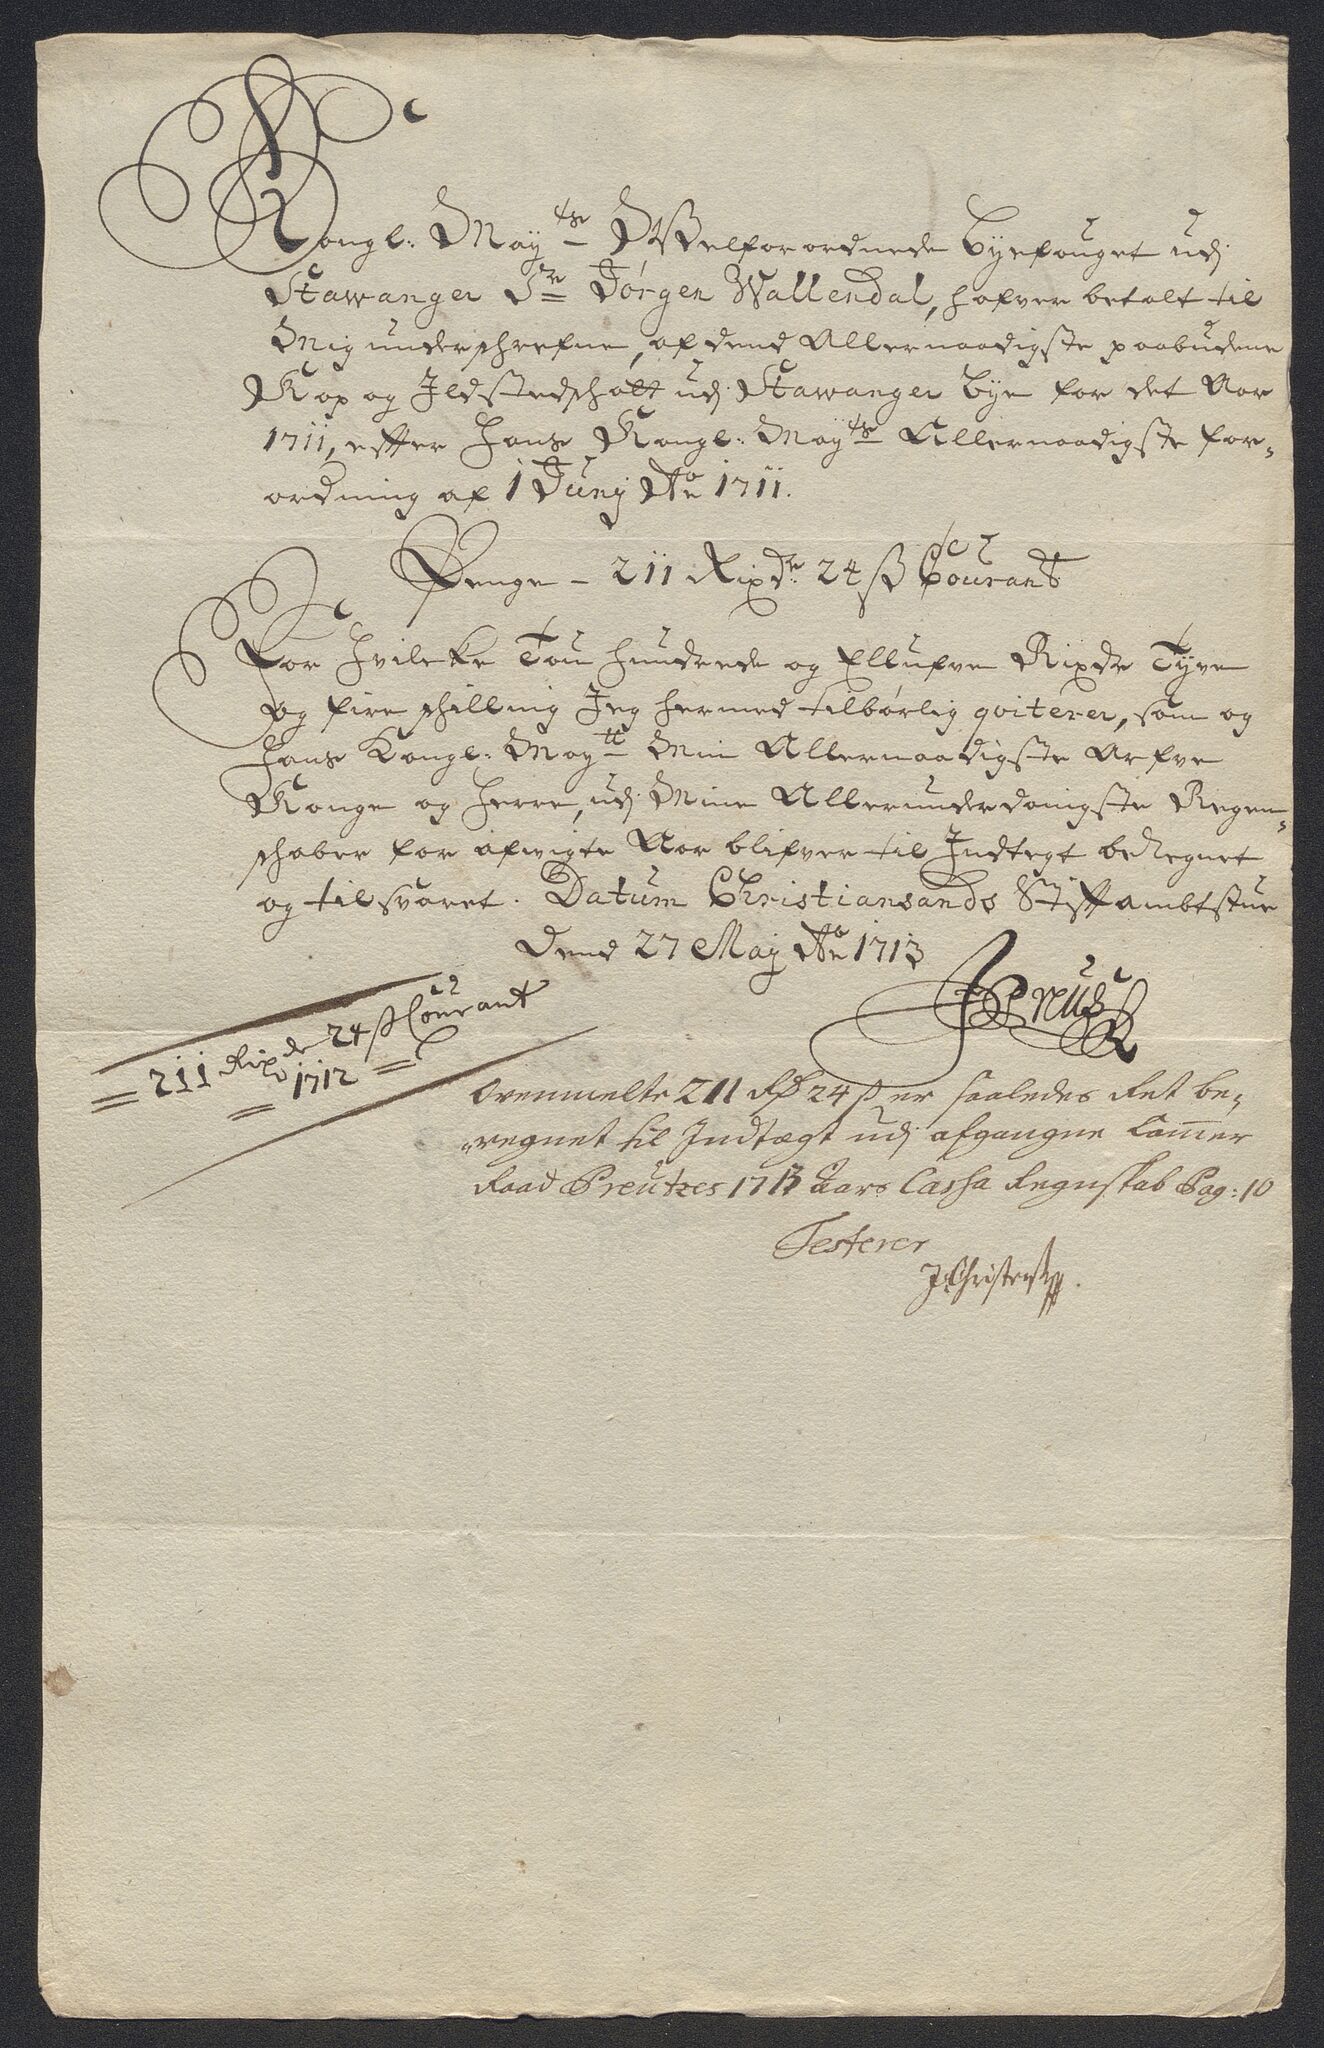 Kongl: May.ts Welforordnede Byefouget udj
Stawanger Sr Jørgen Wallendal, hafver betalt til
Mig underschrefne, af dend Allernaadigste paabudene
Kop og Ildstedschatt udj Stawanger Bye for det Aar
1711, effter Hans Kongl: May.ts Allernaadigste for-
ordning af 1 Junij Ao 1711.
Penge - 211 Rixdr 24 ß Courant
For Hvilcke Tou hundrede og Ellufve Rixdr Tyve
og fire schilling Jeg hermed tilbørlig qviterer, som og
Hans Kongl: May.tt Min Allernaadigste Arfve
Konge og Herre, udj Mine Allerunderdanigste Regen-
schaber for afvigte Aar blifver til Indtegt beregnet
og tilsvaret. Datum Christiansands Stiffambtstue
Dend 27 Maij Ao 1713
Preus
= 211 Rixdr 24 ß Courant
= 1712 =
Ovenmelte 211 Rd 24 ß er saaledes Ret be-
regnet til Indtægt udj afgangne Cammer
Raad Preutzes 1713 Aars Cassa Regnskab Pag: 10
Testerer
J Christens